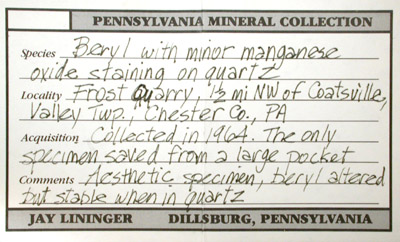 PENNSYLVANIA MINERAL COLLECTION
Species Beryl with minor manganese
oxide staining on quartz
Locality Frost Quarry, 1/2 mi NW of Coatsville,
Valley Twp., Chester Co., PA
Acquisition Collected in 1964. The only
specimen saved from a large pocket
Comments Aesthetic specimen, beryl altered
but stable when in quartz
JAY LININGER DILLSBURG, PENNSYLVANIA